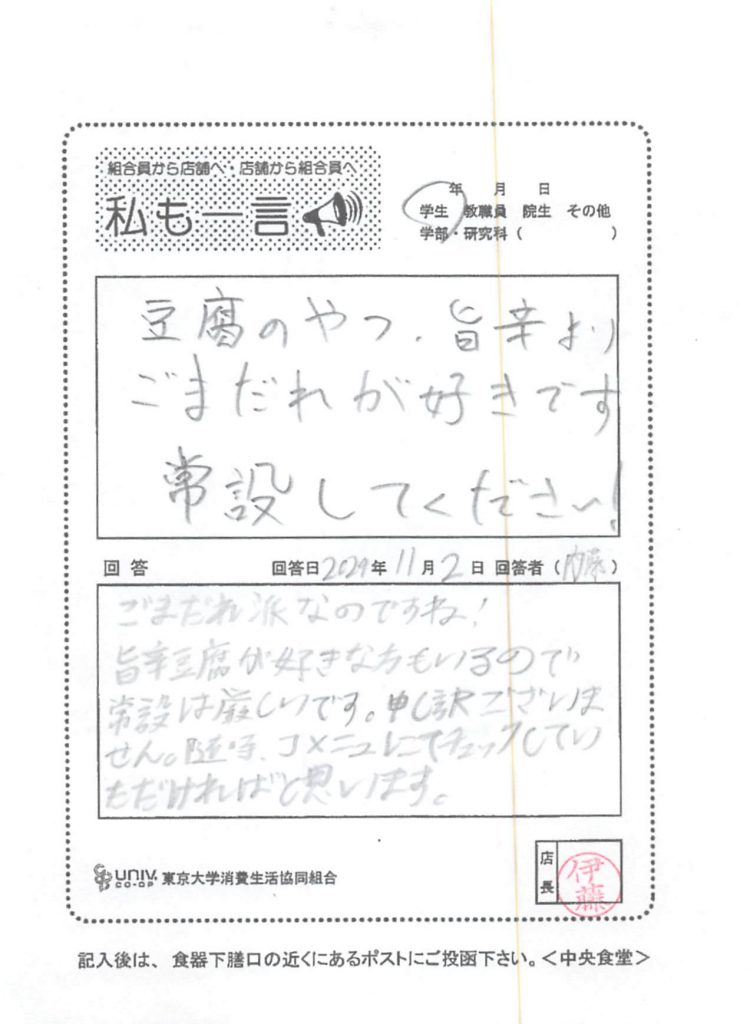 組合員から店舗へ・店舗から組合員へ
私も一言
年 月 日
学生 教職員 院生 その他
学部・研究科（ ）
豆腐のやつ、旨辛より
ごまだれが好きです
常設してください!
回答 回答日2024年11月2日 回答者（内藤）
ごまだれ派なのですね!
旨辛豆腐が好きな方もいるので
常設は厳しいです。申し訳ございま
せん。随時、コメニューにてチェックしてい
ただければと思います。
UNIV. CO-OP 東京大学消費生活協同組合
店長
伊藤
記入後は、食器下膳口の近くにあるポストにご投函下さい。＜中央食堂＞